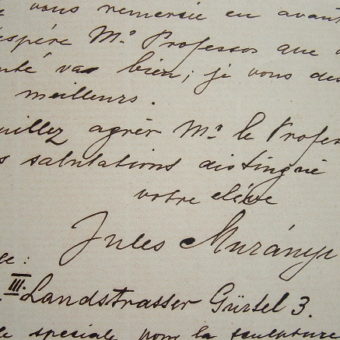 vous remersie en avant
espére Mr. Professor que v
nté vas bien; je vous des
meilleurs.
uillez agrér Mr. le Profes
s salutations distingué
votre elève
Jules Murányi
e:
III. Landstrasser Gürtel 3.
le speciale pour la sculpture